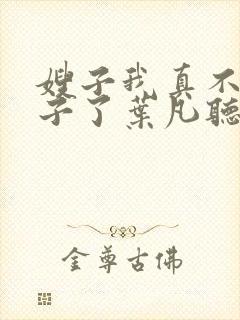 嫂子我真不
子了葉凡聽
金尊古佛